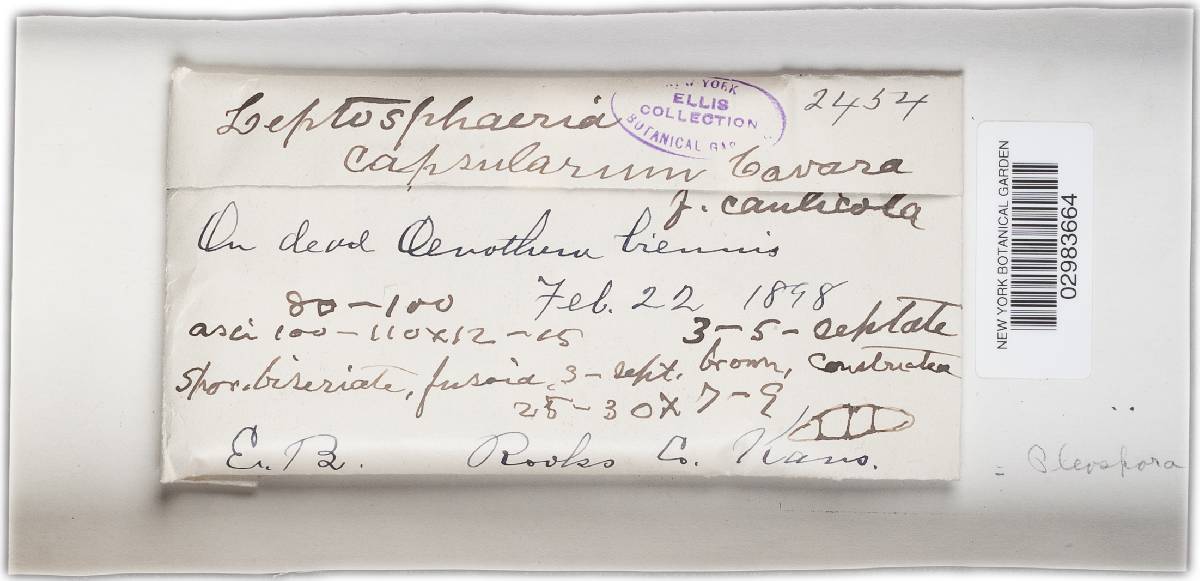 Leptosphaeria
NEW YORK
ELLIS
COLLECTION
BOTANICAL GAR
2454
capsularum Cavara
f. caulicola
On dead Oenothera biennis
80-100 Feb. 22 1898
asci 100-110x12-15 3-5-septate
Spor. biseriate, fusoid, 3-sept. brown, constricted
25-30x7-9
E.B. Rooks Co. Kans.
NEW YORK BOTANICAL GARDEN
02983664
= Pleospora